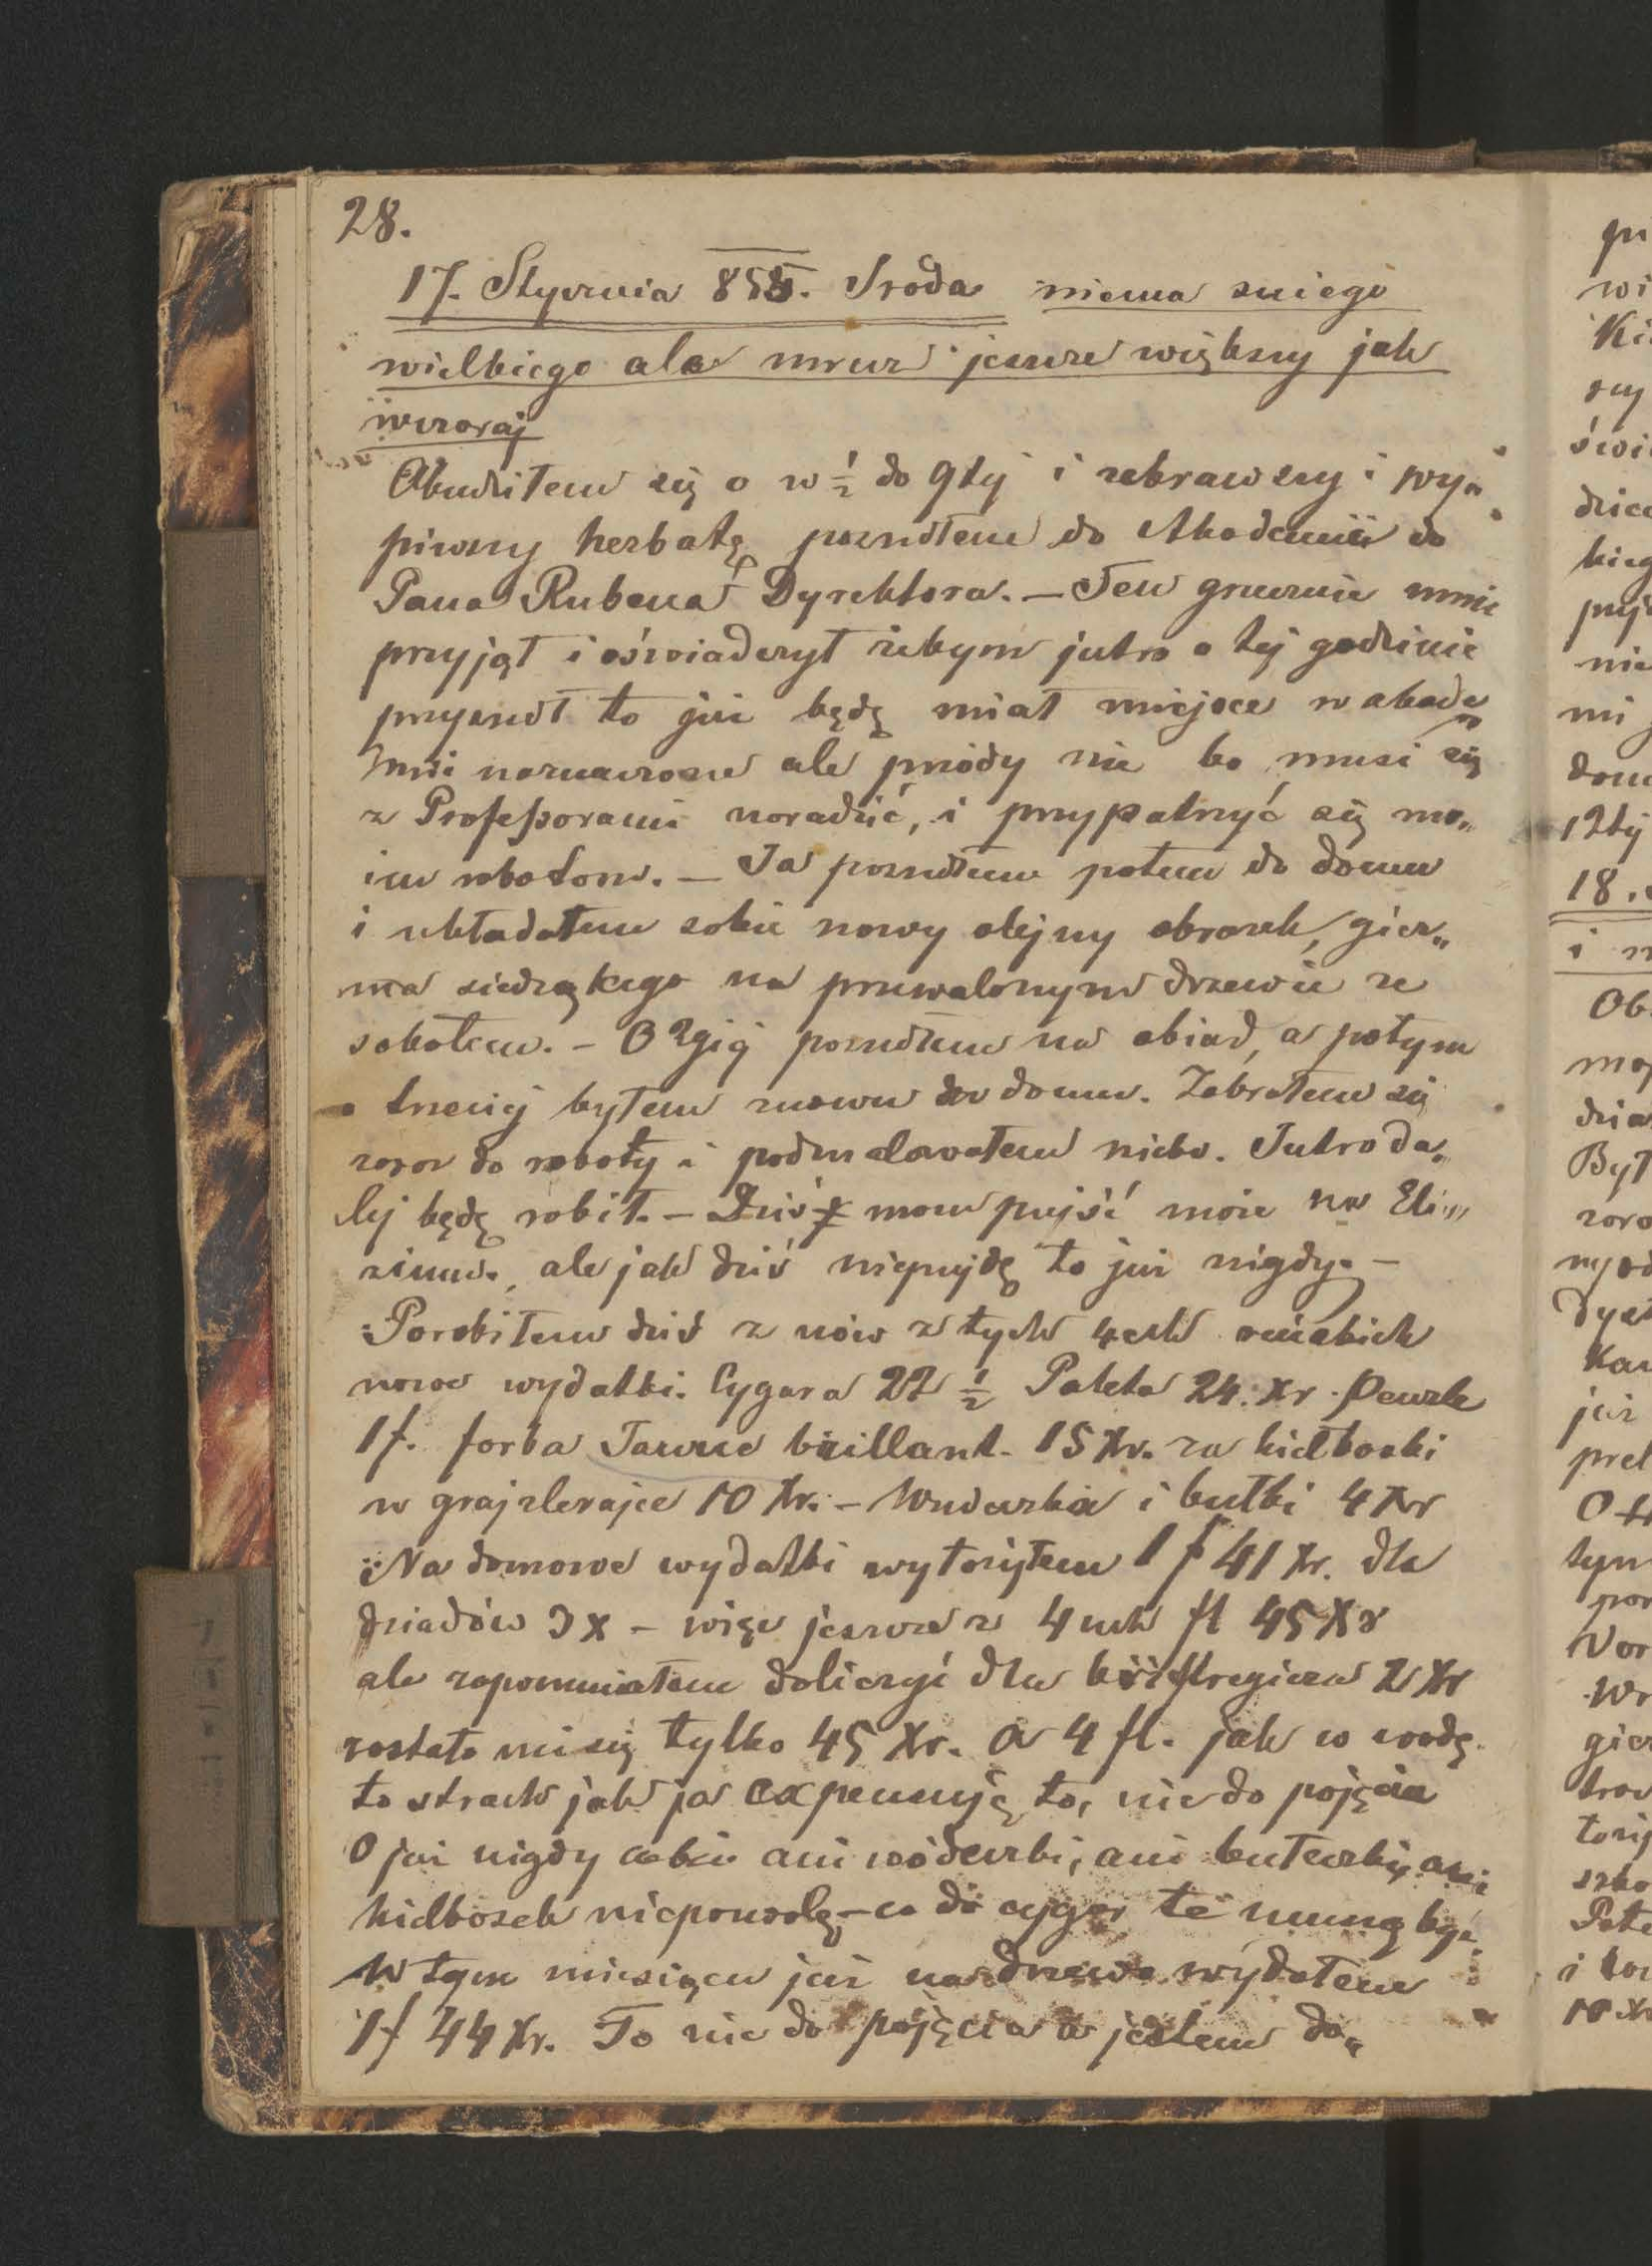 28.
17. Stycznia 855. Sroda niema sniego
wielkiego ale mruz jeszcze większy jak
wczoraj
Obudziłem się o w ½ do 9tej i zebrawszy i wy„
piwszy herbatę poszudłem do Akademii do
Pana Rubena Dyrektora. — Ten grzecznie mnie
przyjął i oświadczył żebym jutro o tej godzinie
przyszedł to już będę miał miejsce w akade„
mii naznaczone ale prziódy nie bo musi się
z Profeßorami naradzić, i przypatrzyć się mo„
im robotom. — Ja poszudłem potem do domu
i układałem sobie nowy olejny obrazek, gier„
mka siedzącego na przewalonym drzewie ze
sokołem. – O 2giej poszudłem na obiad, a potym
o trzeciej byłem znowu w domu. Zabrałem się
zaraz do roboty i podmalowałem niebo. Jutro da„
lej będę robił. – Dziś mam pujść może na Eli„
zium, ale jak dziś niepujdę to już nigdy. –
Porobiłem dziś z nów z tych 4ech reńskich
nowe wydatki. Cygara 22 ½ Paleta 24. xr. Penzle
1f. farba Jaune brillant. 15 Xr. za kiełbaski
w grajzlerajce 10 Xr. – Wudeczka i bułki 4 Xr
Na domowe wydatki wyłożyłem 1 f 41 Xr. dla
dziadów 3 x – więc jeszcze z 4ech fl 45 Xr
ale zapomniałem doliczyć dla briftregiera 2 Xr
zostało mi się tylko 45 Xr. a 4 fl. jak w wodę
to strach jak ja expensuję, to, nie do pojęcia
O już nigdy sobie ani wódeczki, ani bułeczki, ani
kiełbasek niepozwolę – co do cygar te muszą być.
W tym miesiącu już na drzewo wydałem
1f 44 Xr. To nie do pojęcia a jestem do„